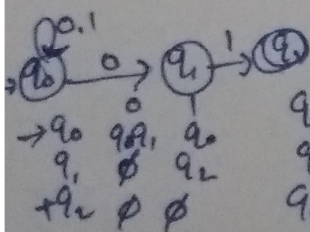 0,1
→ q₀ 0 q₁ 1 q₂
0 1
→ q₀ q₀q₁ q₀ q
q₁ ϕ q₂ q
+q₂ ϕ ϕ q